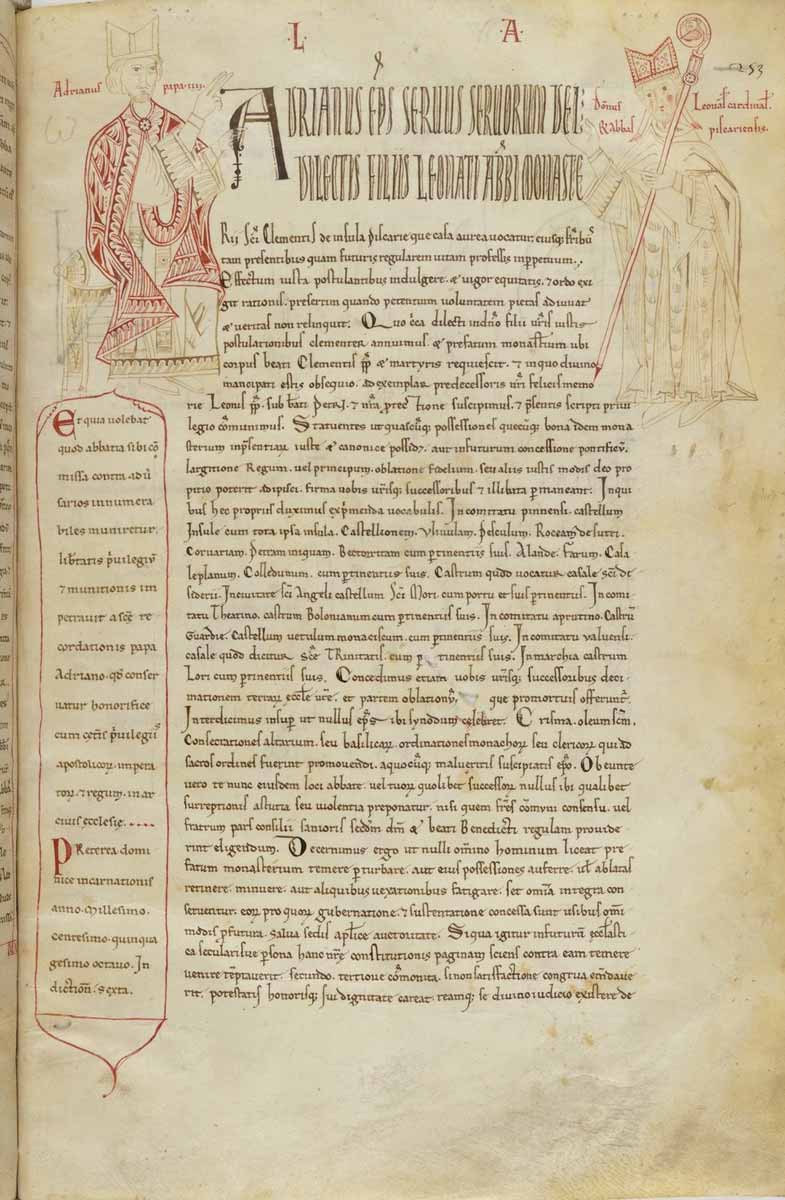 L A
253
Adrianus papa IIII.
Domnus Leonas cardinal
& Abbas piscariensis.
ADRIANUS EPS SERUUS SERUORUM DEI:
DILECTIS FILIIS LEONATI ABBI MONASTE
Rii Sci Clementis de insula piscarie que casa aurea uocatur, eiusq; fribus
tam presentibus quam futuris regularem uitam professis inperpetuum.
Effectum iusta postulantibus indulgere, & uigor equitatis, & ordo exi
git rationis, presertim quando petentium uoluntatem pietas adiuuat
& ueritas non relinquit. Quo circa dilecti indno filii uris iustis
postulationibus clementer annuimus, & prefatum monastium ubi
corpus beati Clementis pp & martyris requiescit, & inquo diuino
mancipati estis obsequio, ad exemplar predecessoris nri felicis memo
rie Leonis pp. sub beati petri & nra protectione suscipimus, & psentis scripti priui
legio comunimus. Statuentes ut quascuq; possessiones quecuq; bona idem mona
sterium inpsentiar iuste & canonice possidet, aut infuturum concessione pontificum,
largitione Regum, uel principum, oblatione fidelium, seu aliis iustis modis deo pro
pitio poterit adipisci, firma uobis urisq; successoribus & illibata pmaneant. Inqui
bus hec propriis duximus exprimenda uocabulis. In comitatu pinnensi, castellum
Insule cum tota ipsa insula, Castellionem, pesculum, Roccam de sutri.
Coruariam, petram iniquam, Bectorritam cum ptinentiis suis. Alande. Farum. Casa
leplanum. Colledunum, cum ptinentiis suis. Castrum quod uocatur casale sci de
siderii. Inciuitate sci Angeli castellum Sci Mori, cum portu et suis ptinentiis. In comi
tatu Theatino, castrum Bolonianum cum ptinentiis suis. In comitatu aprutino, Castru
Guardie, Castellum uetulum monaciscum, cum ptinentiis suis. In comitatu ualuensi,
casale quod dicitur Sce TRinitatis, cum p tinentiis suis. In marchia castrum
Lori cum ptinentiis suis. Concedimus etiam uobis urisq; successoribus deci
mationem terrar eccle ure, et partem oblationu, que promortuis offerunt.
Interdicimus insup ut nullus eps ibi synodum celebret. Crisma, oleum scm,
Consecrationes altarium, seu basilicar, ordinationes monachor seu clericor qui ad
sacros ordines fuerint promouendi, aquocuq; malueritis suscipiatis epo. Obeunte
uero te nunc eiusdem loci abbate, uel tuor quolibet successor nullus ibi qualibet
surreptionis astutia seu uiolentia preponatur, nisi quem fres comuni consensu, uel
fratrum pars consilii sanioris scdm dm & beati Benedicti regulam prouide
rint eligendum. Decernimus ergo ut nulli omnino hominum liceat pre
fatum monasterium temere pturbare, aut eius possessiones auferre, uel ablatas
retinere, minuere, aut aliquibus uexationibus fatigare, set omnia integra con
seruentur, eor pro quor gubernatione & sustentatione concessa sunt usibus omi
modis pfutura, salua sedis aplice auctoritate. Siqua igitur infuturum ecclesiasti
ca secularisue psona hanc nre constitutionis paginam sciens contra eam temere
uenire teptauerit, secundo, tertioue comonita, sinon satisfactione congrua emdaue
rit, potestatis honorisq; sui dignitate careat, reamq; se diuino iudicio existere de
Et quia uolebat
quod abbatia sibi co
missa contra adu
sarios innumera
biles muniretur,
libertatis priuilegiu
& munitionis im
petrauit a sce re
cordationis papa
Adriano, qd conser
uatur honorifice
cum ceteris priuilegiis
apostolicor, impera
tor, & regum, in ar
ciuis ecclesie.....
PReterea domi
nice incarnationis
anno. Millesimo.
centesimo. quinqua
gesimo octauo. In
diction. Sexta.